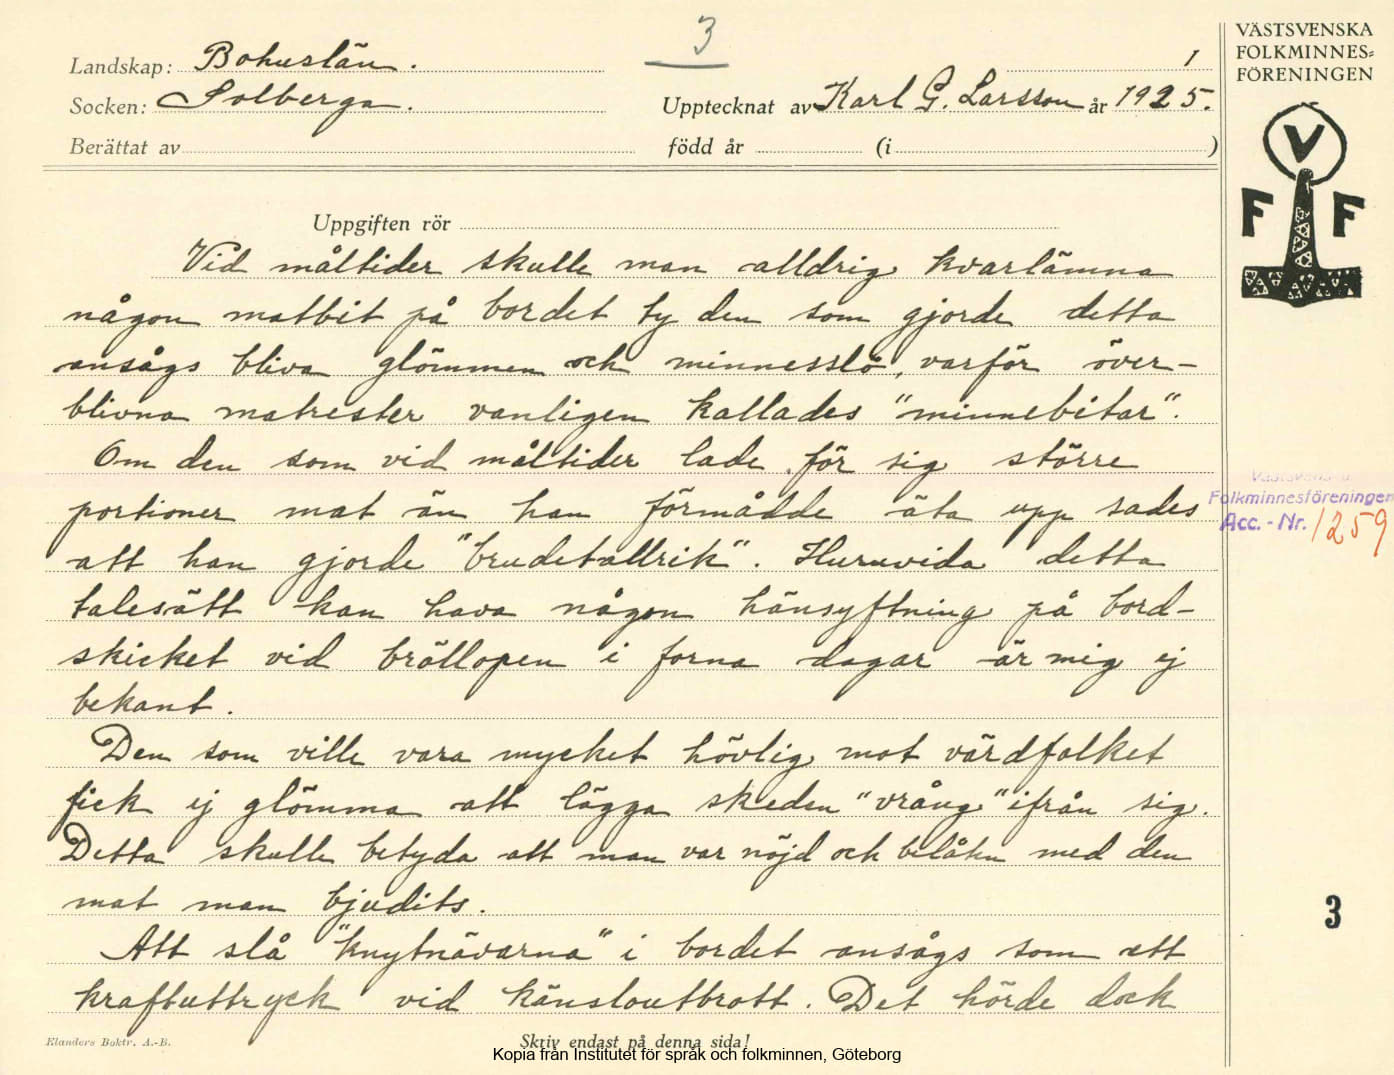 3
Landskap: Bohuslän.
1
Socken: Solberga.
Upptecknat av Karl G. Larsson år 1925.
Berättat av
född år (i )
VÄSTSVENSKA
FOLKMINNES=
FÖRENINGEN
V
F F
Uppgiften rör
Vid måltider skulle man alldrig kvarlämna
någon matbit på bordet ty den som gjorde detta
ansågs bliva glömmen och minnesslö, varför över-
blivna matrester vanligen kallades "minnebitar".
Om den som vid måltider lade för sig större
portioner mat än han förmådde äta upp sades
att han gjorde "brudetallrik". Huruvida detta
talesätt kan hava någon hänsyftning på bord-
skicket vid bröllopen i forna dagar är mig ej
bekant.
Den som ville vara mycket hövlig mot värdfolket
fick ej glömma att lägga skeden "vrång" ifrån sig.
Detta skulle betyda att man var nöjd och belåten med den
mat man bjudits.
Att slå "knytnävarna" i bordet ansågs som ett
kraftuttryck vid känsloutbrott. Det hörde dock
Västsvenska
Folkminnesföreningen
Acc. - Nr. 1259
3
Elanders Boktr. A.-B.
Skriv endast på denna sida!
Kopia från Institutet för språk och folkminnen, Göteborg